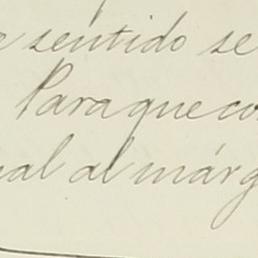 e sentido se
Para que co
al al márg